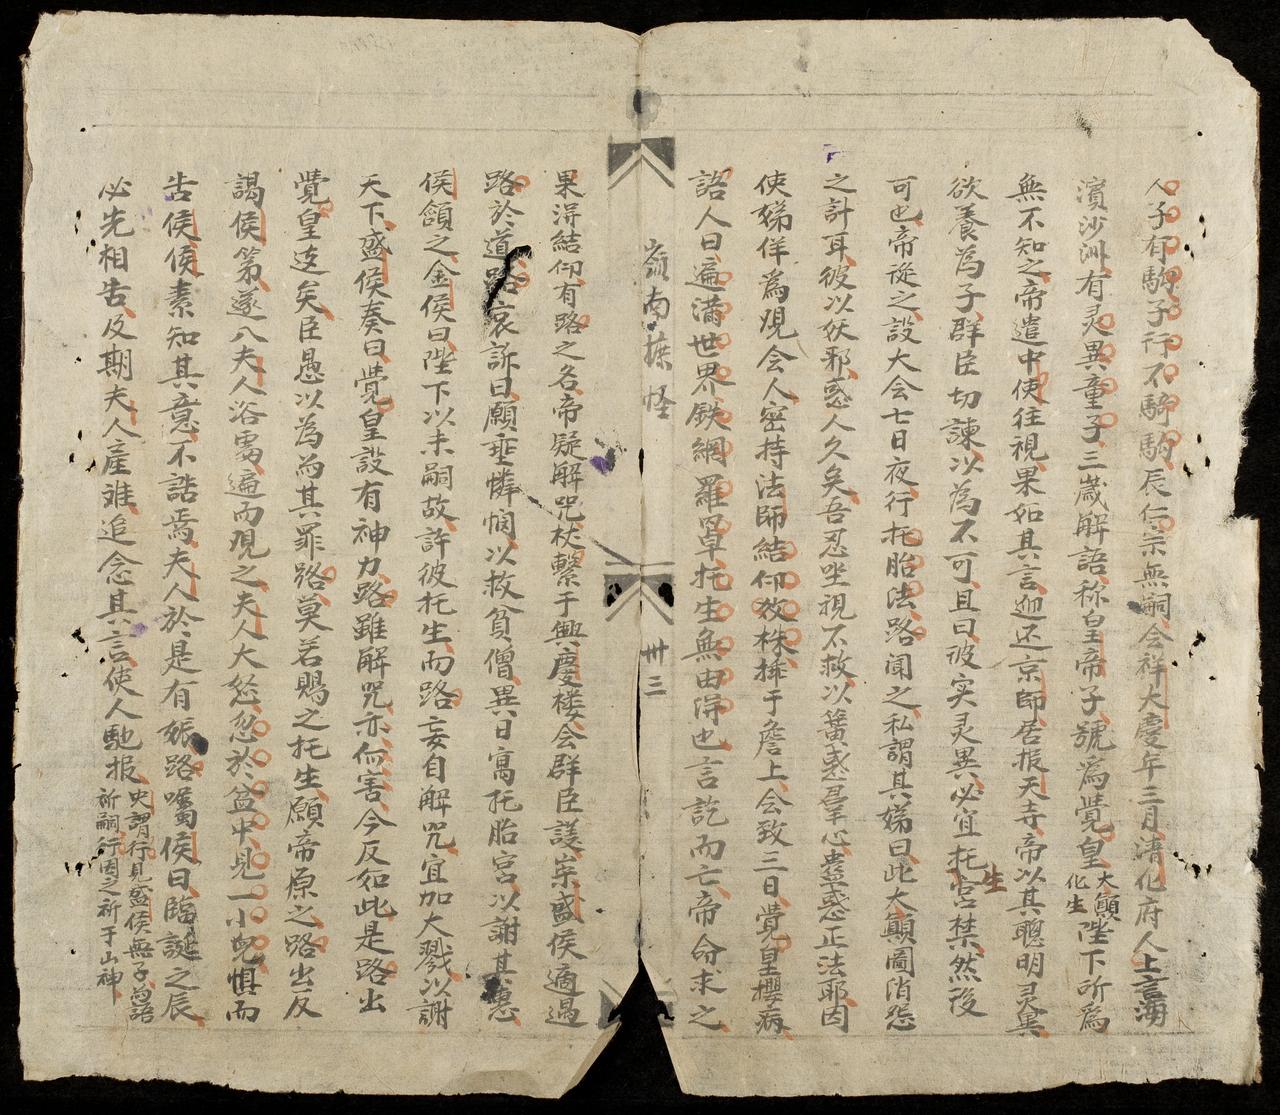 人子有駒子行不騎駒辰仁宗無嗣会祥大慶年三月清化府人上言海
濱沙洲有灵異童子三歲解語称皇帝子號為覺皇大顛化生陛下所為
無不知之帝遣中使往視果如其言迎还京師居报天寺帝以其聰明灵異
欲養為子群臣切諫以為不可且曰彼实灵異必宜托生宮禁然後
可也帝從之設大会七日夜行托胎法路闻之私謂其娣曰此大顛圖消怨
之計耳彼以妖邪惑人久矣吾忍坐視不救以簧惑羣心蠱惑正法耶因
使娣佯為覌会人密持法師結印数株挿于簷上会致三日覺皇攖病
語人曰遍满世界鉄網羅罩托生無由淂也言訖而亡帝命求之
嶺南摭怪
卅三
果淂結印有路之名帝疑解咒杖繫于興慶楼会群臣議宲盛侯適過
路於道路哀訴曰願垂憐悯以救貧僧異日寓托胎宮以謝其惠
侯頷之金侯曰陛下以未嗣故許彼托生而路妄自解咒宜加大戮以謝
天下盛侯奏曰覺皇設有神力路雖解咒亦何害今反如此是路出
覺皇逺矣臣愚以為而其罪路莫若賜之托生願帝原之路出反
謁侯第遂入夫人浴䖏遍而覌之夫人大怒忽於盆中見一小兒惧而
告侯侯素知其意不詰焉夫人於是有娠路嘱侯曰臨誕之辰
必先相告及期夫人産难追念其言使人馳报史謂行見盛侯無子為語祈嗣行因之祈于山神